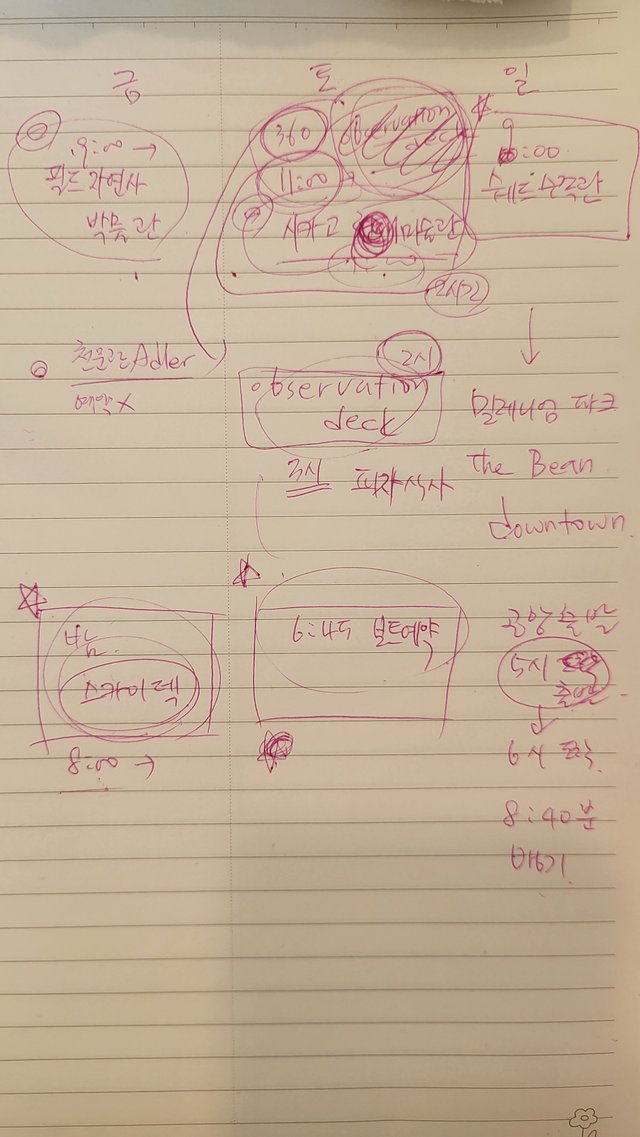 금
9:00 →
필드 자연사
박물관
천문관 Adler
예약 X
밤
스카이덱
8:00 →
토
360
observation
deck
11:00
시카고 미술관
2시간
2시
observation
deck
3시 피자식사
6:45 보트예약
일
9
:00
쉐드 수족관
밀레니엄 파크
The Bean
downtown.
공항출발
5시
출발
6시 도착
8:40분
뱅기